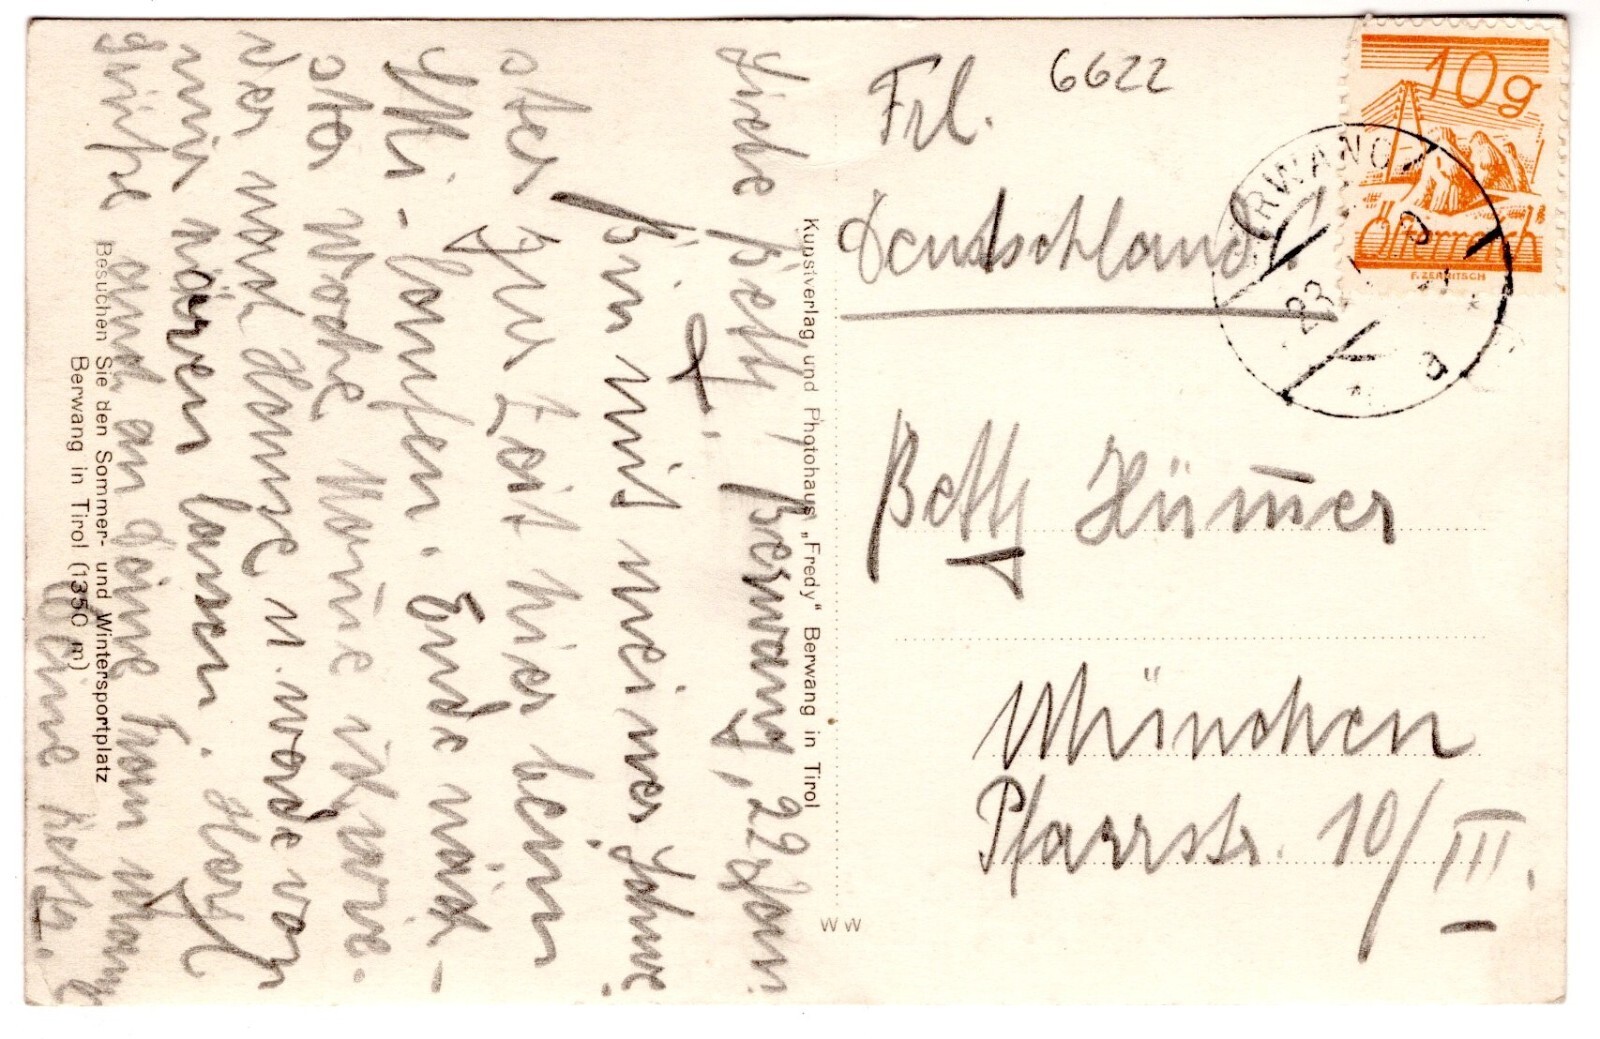 Frl.
6622
Deutschland!
Betty Hümmer
München
Pfarrstr. 10/III.
10g
Österreich
F. ZERRITSCH
RWANG
28
a
Kunstverlag und Photohaus „Fredy“ Berwang in Tirol
W W
Liebe Betty, Berwang, 22. Jan.
Bin mit meiner Schwe-
ster zur Zeit hier beim
Ski-laufen. Ende näch-
ster Woche komme ich wie-
der nach Hause u. werde von
mir hören lassen. Herzl.
Grüße auch an Deine Frau Mama
Deine
Besuchen Sie den Sommer- und Wintersportplatz
Berwang in Tirol (1350 m)